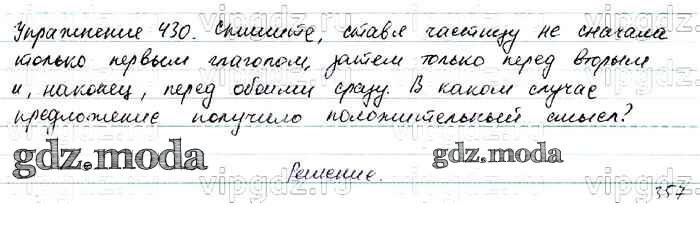 Упражнение 430. Спишите, ставя частицу не сначала
только первым глаголом, затем только перед вторым
и, наконец, перед обоими сразу. В каком случае
предложение получило положительный смысл?
gdz.moda
gdz.moda
Решение.
357